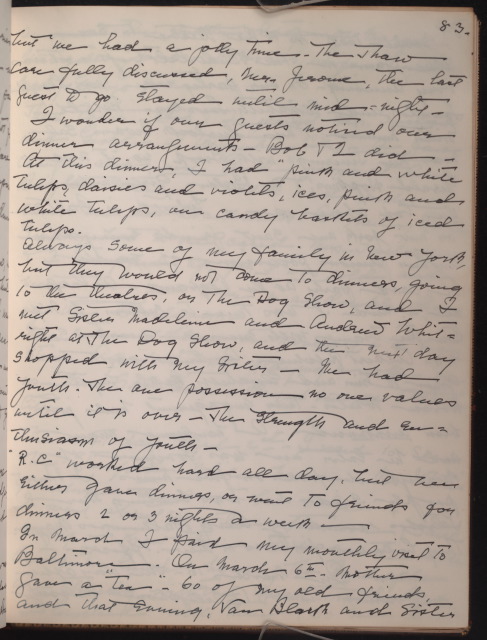 83.
but we had a jolly time - The Thaw
case fully discussed, Mrs. Jerome, the last
guest to go stayed until mid=night -
I wonder if our guests noticed our
dinner arrangements - Bob + I did -
At this dinner, I had "pink and white
tulips, daisies and violets, ices, pink and
white tulips, on candy baskets of iced
tulips.
Always some of my family in New York,
but they would not come to dinners, going
to the theatres, or The Dog Show, and I
met Sister Madeleine and Andrew Whit=
right at The Dog Show, and the next day
shopped with my Sister - We had
youth. The one possession no one values
until it is over - The strength and en=
thusiasm of youth -
"R.C" worked hard all day, but we
either gave dinners, or went to friends for
dinners 2 or 3 nights a week -
In March I paid my monthly visit to
Baltimore. On March 6th Mother
gave a "Tea" - 60 of my old friends,
and that evening, Van and Sister